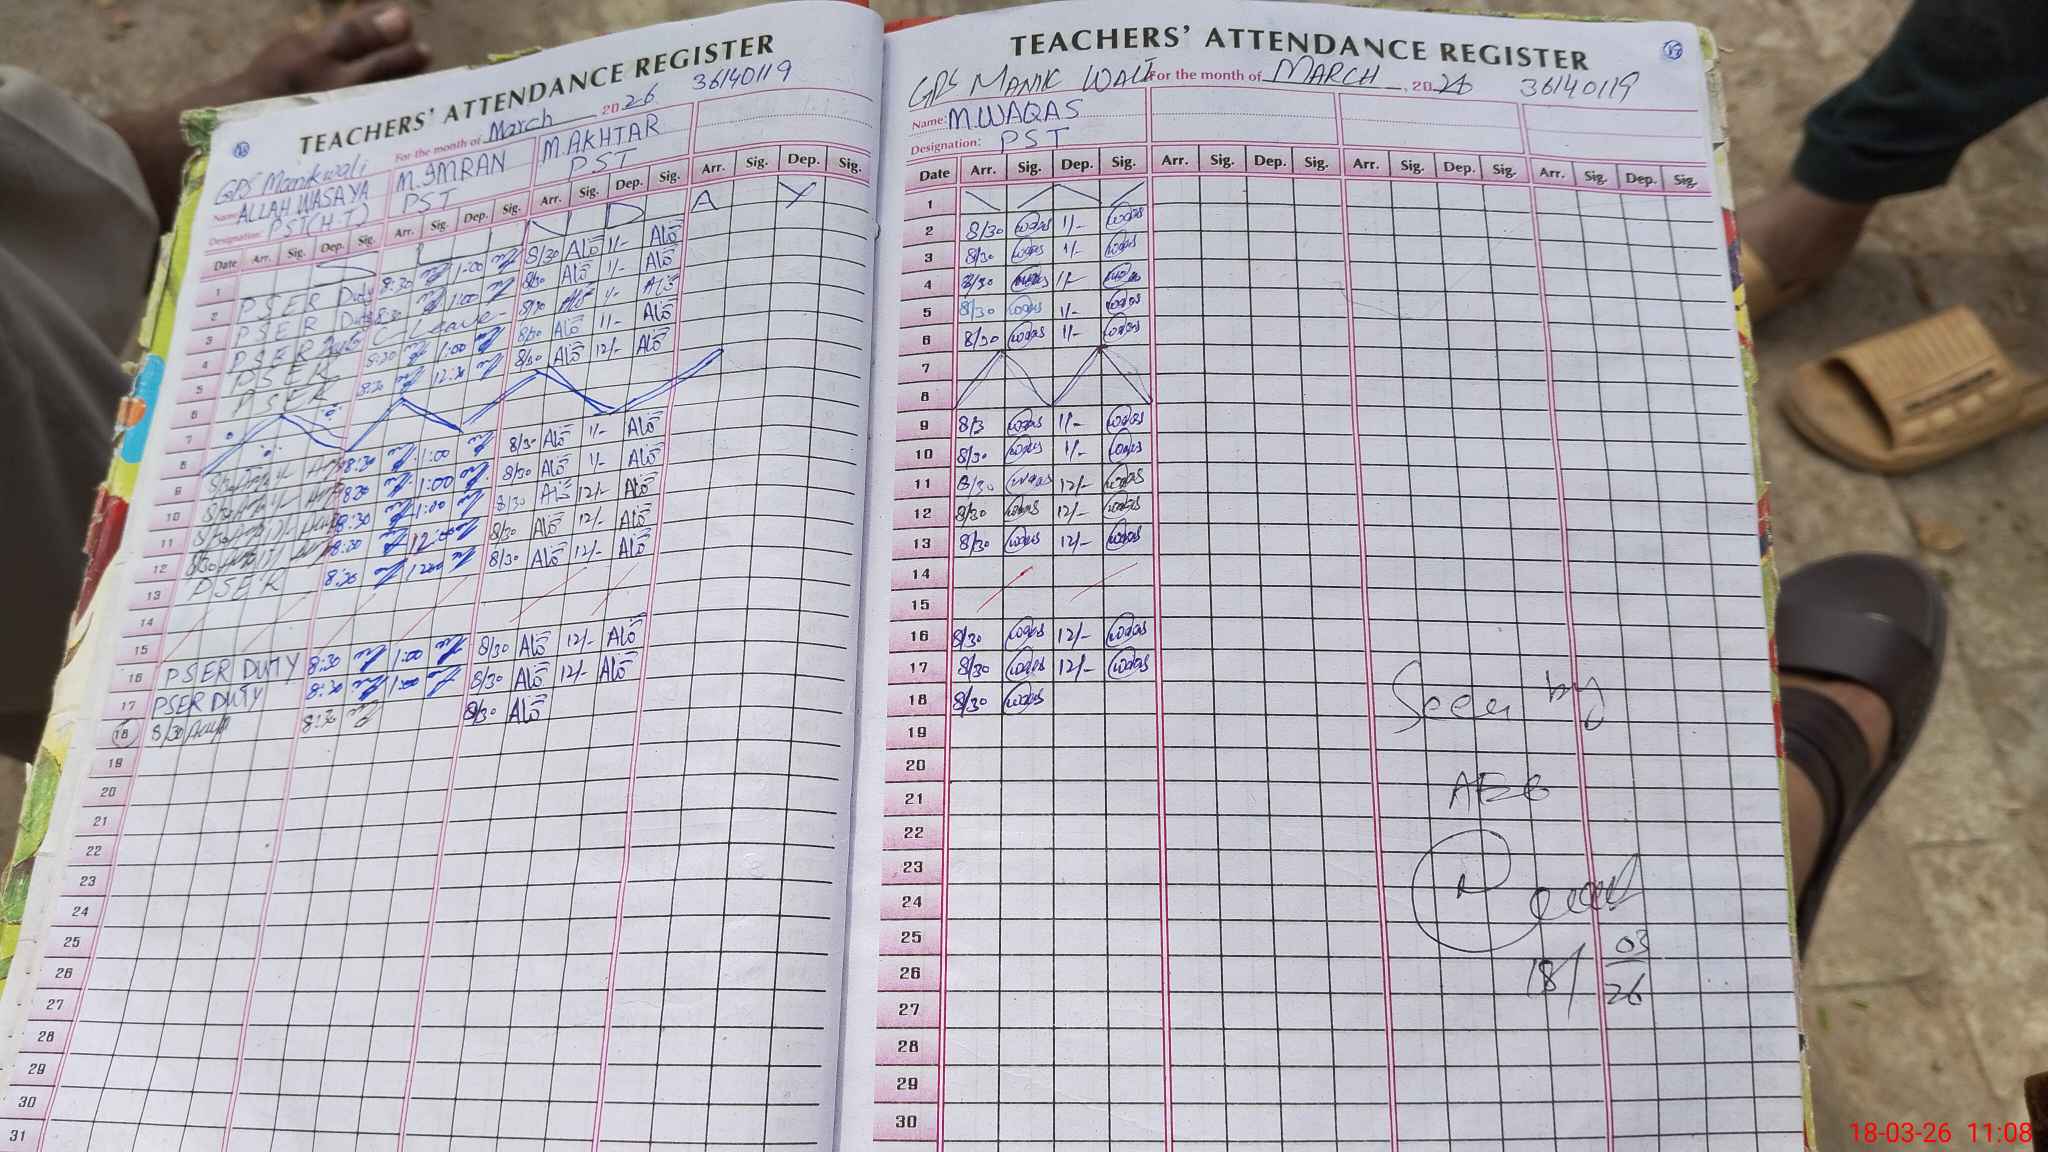 TEACHERS' ATTENDANCE REGISTER
36140119
For the month of March 2026
GPS Manikwali
Name: ALLAH WASAYA M. IMRAN M. AKHTAR
Designation: PST(H-T) PST PST
Date Arr. Sig. Dep. Sig. Arr. Sig. Dep. Sig. Arr. Sig. Dep. Sig. Arr. Sig. Dep. Sig.
1 S U N D A Y
2 PSER Duty 8:30 1:00 8/30 1/-
3 PSER Duty 8:30 1:00 8/30 1/-
4 PSER Duty C Leave 8/30 1/-
5 PSER 8:30 1:00 8/30 1/-
6 PSER 8:30 12:30 8/30 12/-
7
8
9 8/30 8:30 1:00 8/30 1/-
10 8/30 8:30 1:00 8/30 1/-
11 8/30 8:30 1:00 8/30 12/-
12 8/30 8:30 12:00 8/30 12/-
13 PSER 8:30 1200 8/30 12/-
14
15
16 PSER DUTY 8:30 1:00 8/30 12/-
17 PSER DUTY 8:30 1:00 8/30 12/-
18 8/30 8:30 8/30
19
20
21
22
23
24
25
26
27
28
29
30
31
TEACHERS' ATTENDANCE REGISTER
GPS MANIK WALI For the month of MARCH 2026 36140119
Name: M.WAQAS
Designation: PST
Date Arr. Sig. Dep. Sig. Arr. Sig. Dep. Sig. Arr. Sig. Dep. Sig. Arr. Sig. Dep. Sig.
1
2 8/30 waqas 1/- waqas
3 8/30 waqas 1/- waqas
4 8/30 waqas 1/- waqas
5 8/30 waqas 1/- waqas
6 8/30 waqas 1/- waqas
7
8
9 8/3 waqas 1/- waqas
10 8/30 waqas 1/- waqas
11 8/30 waqas 12/- waqas
12 8/30 waqas 12/- waqas
13 8/30 waqas 12/- waqas
14
15
16 8/30 waqas 12/- waqas
17 8/30 waqas 12/- waqas
18 8/30 waqas
19
20
21
22
23
24
25
26
27
28
29
30
Seen by
18/03/26
18-03-26 11:08